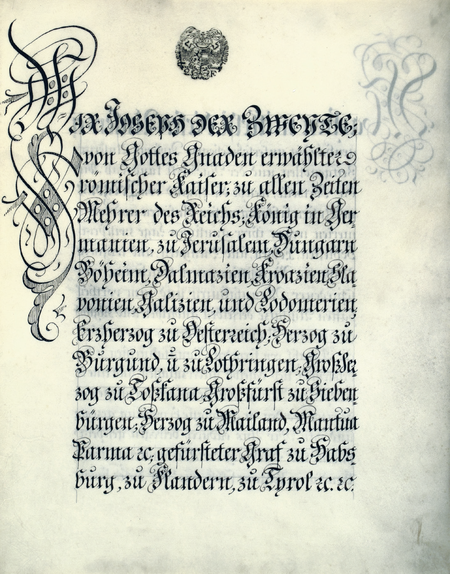 WIR JOSEPH DER ZWEYTE,
von Gottes Gnaden erwählter
römischer Kaiser, zu allen Zeiten
Mehrer des Reichs, König in Ger
manien, zu Jerusalem, Hungarn
Böheim, Dalmazien, Kroazien, Sla
vonien, Galizien, und Lodomerien,
Erzherzog zu Oesterreich, Herzog zu
Burgund, ū zu Lothringen, Großher
zog zu Toßkana, Großfürst zu Sieben
bürgen, Herzog zu Mailand, Mantua
Parma ꝛc, gefürsteter Graf zu Habs
burg, zu Flandern, zu Tyrol ꝛc. ꝛc.